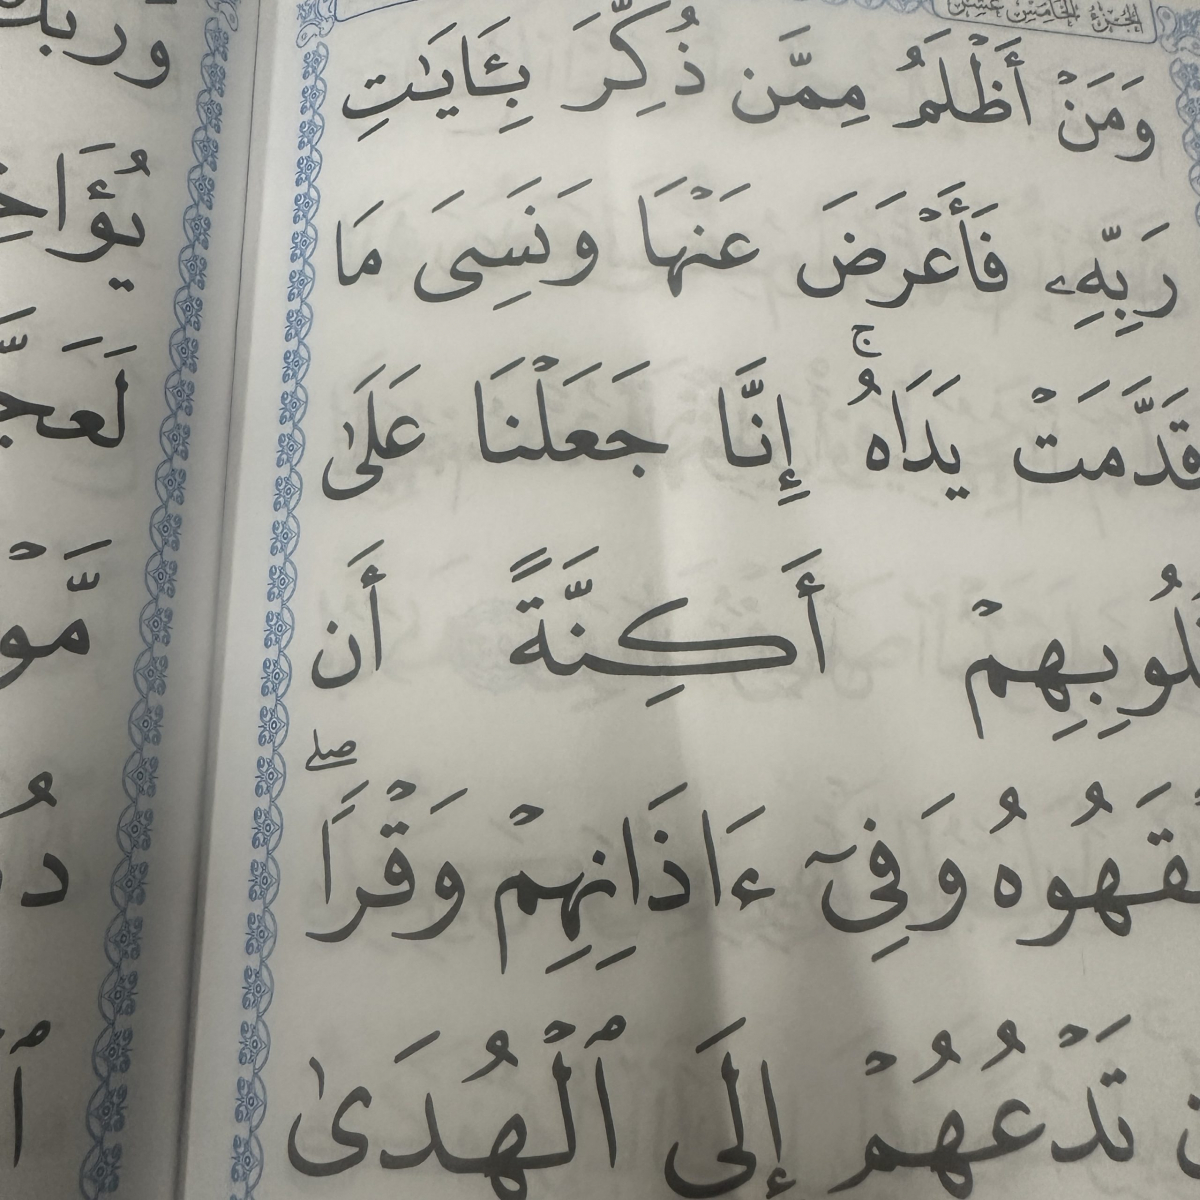 الجزء الخامس عشر
وَمَنْ أَظْلَمُ مِمَّن ذُكِّرَ بِـَٔايَـٰتِ
رَبِّهِۦ فَأَعْرَضَ عَنْهَا وَنَسِىَ مَا
قَدَّمَتْ يَدَاهُ ۚ إِنَّا جَعَلْنَا عَلَىٰ
قُلُوبِهِمْ أَكِنَّةً أَن
يَفْقَهُوهُ وَفِىٓ ءَاذَانِهِمْ وَقْرًا ۖ
تَدْعُهُمْ إِلَى ٱلْهُدَىٰ
وربك
يُؤَاخِ
لَعَجَّ
مَّوْ
دُ